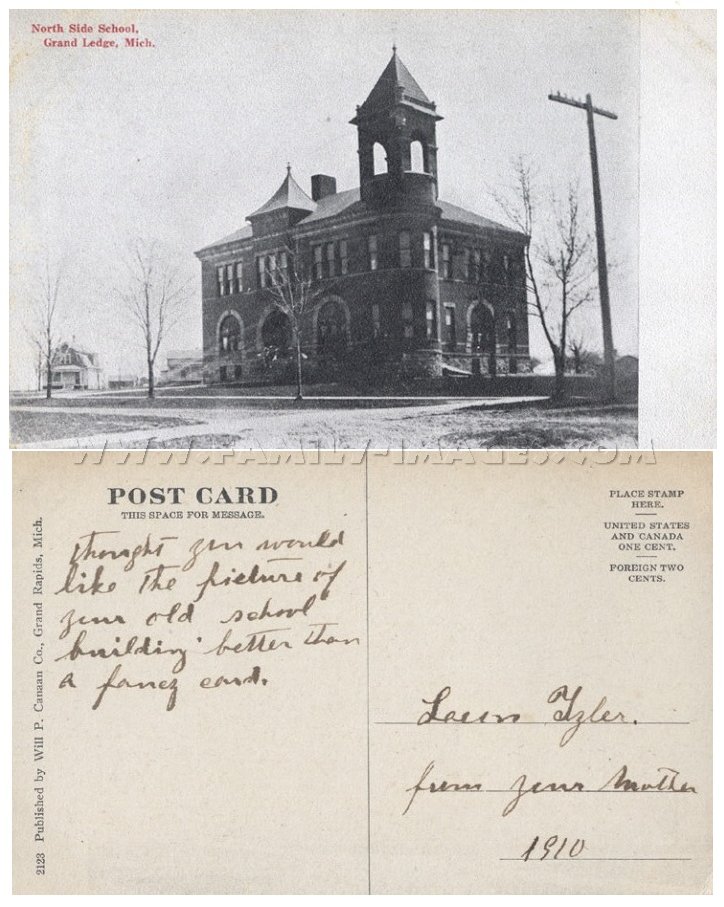 North Side School,
Grand Ledge, Mich.
WWW.FAMILY-IMAGES.COM
POST CARD
THIS SPACE FOR MESSAGE.
thought you would
like the picture of
your old school
building better than
a fancy card.
PLACE STAMP
HERE.
UNITED STATES
AND CANADA
ONE CENT.
FOREIGN TWO
CENTS.
Tyler.
from your Mother
1910
2123 Published by Will P. Canaan Co., Grand Rapids, Mich.